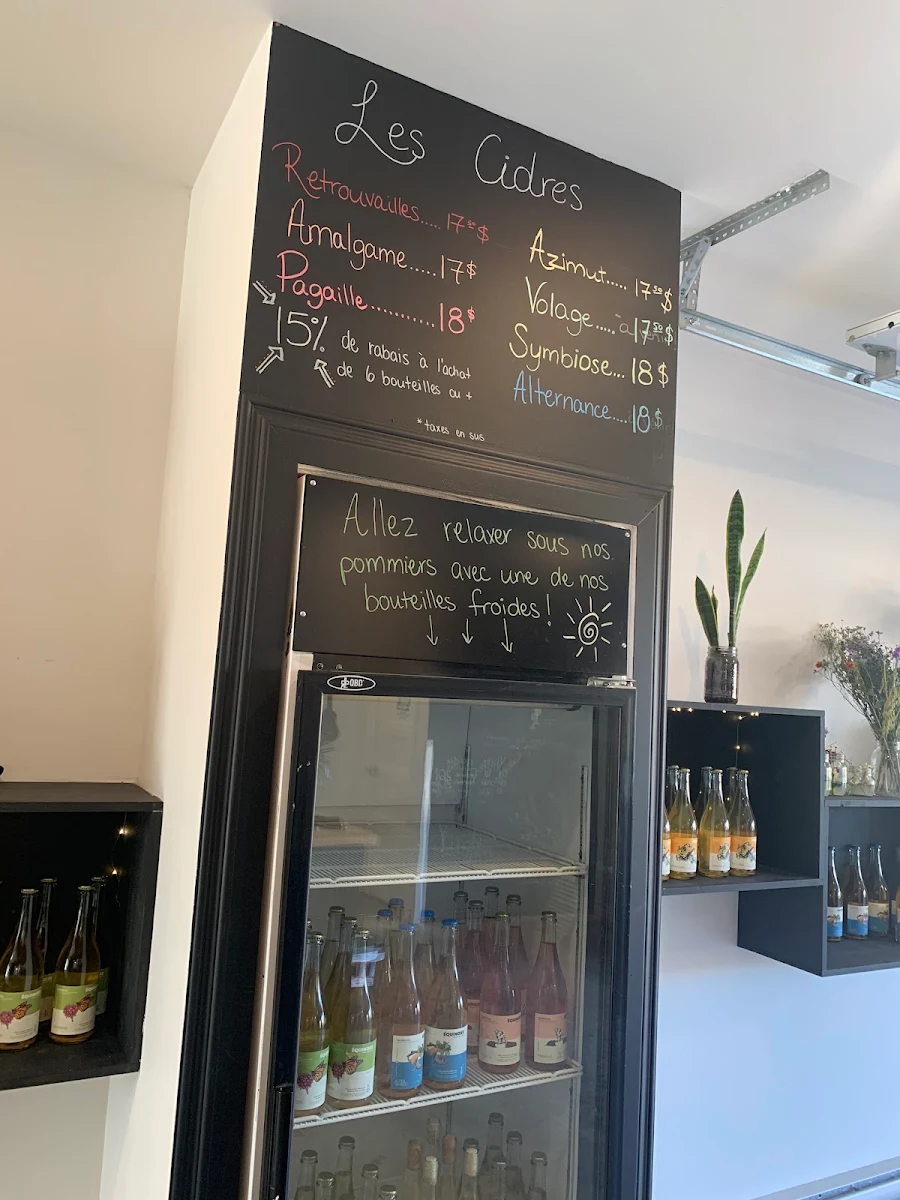 Les Cidres
Retrouvailles.... 17⁵⁰$
Amalgame.....17$
Pagaille...........18$
15% de rabais à l'achat
de 6 bouteilles ou +
Azimut..... 17⁵⁰$
Volage..... 17⁵⁰$
Symbiose... 18$
Alternance....18$
*taxes en sus
Allez relaxer sous nos
pommiers avec une de nos
bouteilles froides!
QBD